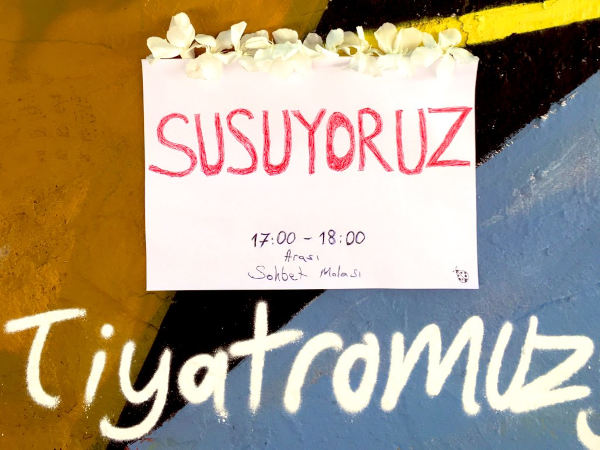 SUSUYORUZ
17:00 - 18:00
Arası
Sohbet Molası
Tiyatromuz